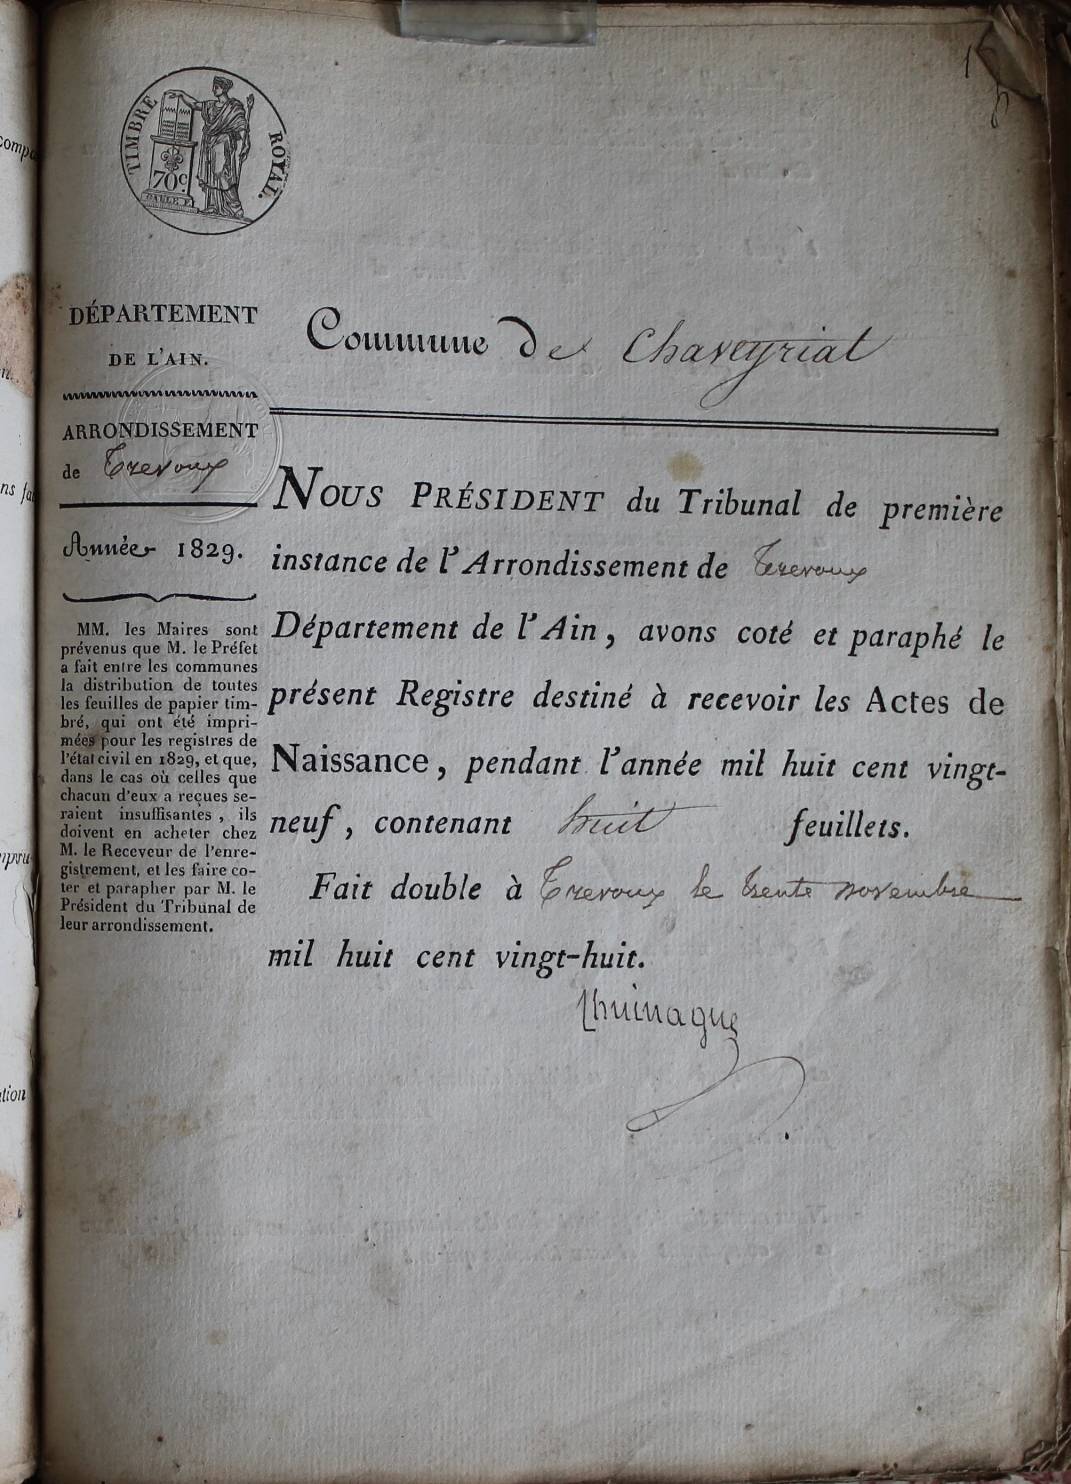 TIMBRE ROYAL.
70c.
DÉPARTEMENT
DE L'AIN.
ARRONDISSEMENT
de Trevoux
Année 1829.
MM. les Maires sont
prévenus que M. le Préfet
a fait entre les communes
la distribution de toutes
les feuilles de papier tim-
bré, qui ont été impri-
mées pour les registres de
l'état civil en 1829, et que,
dans le cas où celles que
chacun d'eux a reçues se-
raient insuffisantes, ils
doivent en acheter chez
M. le Receveur de l'enre-
gistrement, et les faire co-
ter et parapher par M. le
Président du Tribunal de
leur arrondissement.
Commune de Chaveyriat
NOUS PRÉSIDENT du Tribunal de première
instance de l'Arrondissement de Trevoux
Département de l'Ain, avons coté et paraphé le
présent Registre destiné à recevoir les Actes de
Naissance, pendant l'année mil huit cent vingt-
neuf, contenant huit feuillets.
Fait double à Trevoux le trente novembre
mil huit cent vingt-huit.